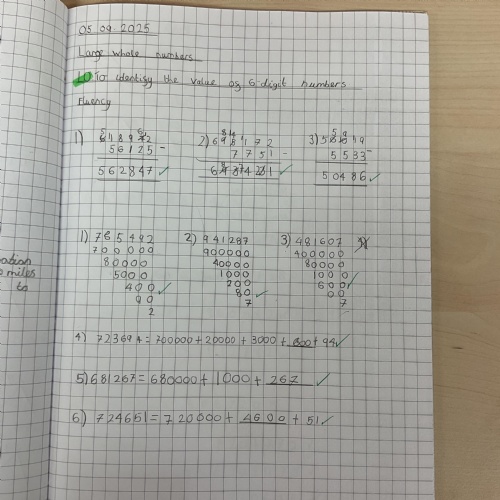 05.09.2025
Large whole numbers
LO To identify the value of 6-digit numbers
Fluency
1) 618972 2) 695172 3) 56019
56125 - 7751 - 5533 -
562847 ✓ 687421 ✓ 50486 ✓
1) 765492 2) 941287 3) 481607
700000 900000 400000
80000 40000 80000
5000 1000 1000
400 ✓ 200 600 ✓
90 80 ✓ 00
2 7 7
4) 723694 = 700000 + 20000 + 3000 + 600 + 94 ✓
5) 681267 = 680000 + 1000 + 267 ✓
6) 724651 = 720000 + 4600 + 51 ✓
ation
miles
to